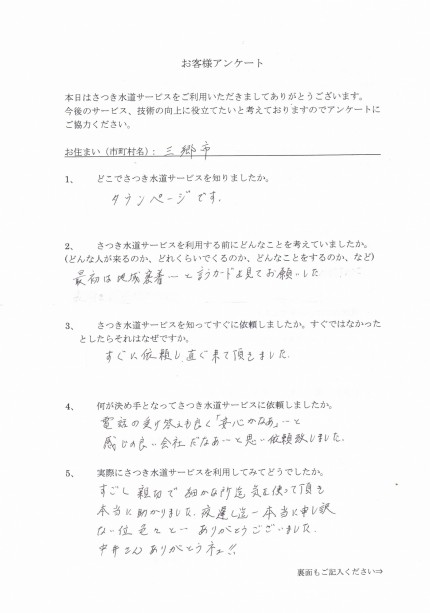 お客様アンケート
本日はさつき水道サービスをご利用いただきましてありがとうございます。
今後のサービス、技術の向上に役立てたいと考えておりますのでアンケートに
ご協力ください。
お住まい（市町村名）： 三郷市
1、 どこでさつき水道サービスを知りましたか。
タウンページです.
2、 さつき水道サービスを利用する前にどんなことを考えていましたか。
(どんな人が来るのか、どれくらいでくるのか、どんなことをするのか、など)
最初は地域密着ーと言うカードを見てお願いした
3、 さつき水道サービスを知ってすぐに依頼しましたか。すぐではなかった
としたらそれはなぜですか。
すぐに依頼し直ぐ来て頂きました.
4、 何が決め手となってさつき水道サービスに依頼しましたか。
電話の受け答えも良く「安心かなあ」ーと
感じの良い会社だなあーと思い依頼致しました.
5、 実際にさつき水道サービスを利用してみてどうでしたか。
すごし親切で細かな所迄気を使って頂き
本当に助かりました.夜遅し迄ー本当に申し訳
ない位色々とーありがとうございました.
中井さんありがとうネ!!
裏面もご記入ください⇒